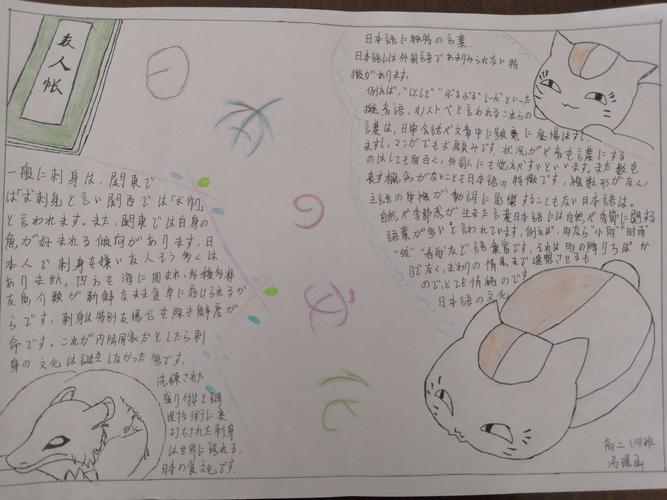 友人帐
日本の文化
一般に刺身は、関東で
ば「お刺身」と言い関西では「お作」
と言われます。また、関東では白身の
魚が好まれる傾向があります。日
本人で刺身を嫌い友人そう多くは
ありません。四方を海に囲まれ、多種多様
友魚介類が新鮮なまま食卓に届けられるか
らです。刺身は特別な場合を除き解凍が
命です。これが内陸国家だとしたら刺
身の文化は誕生しなかった筈です。
洗練された
盛り付けと調
理技術に裏
打ちされた刺身
は世界に誇れる、
日本の食文化です。
日本語に独特の言葉
日本語には外国語であまりみられない特
徴があります。
例えば、"しとしと""ぶるぶる"しーんといった
擬名語、オノストペと言われるこれらの
言葉は、日常会話や文章中に頻繁に登場はすし
ますし、マンガでもお馴染みです 状況がや名を言葉にする
のはしても面白く、外国人にも覚えやすいといいます。また数を
表す概念がないことも日本語の特徴です、複数形がなく、
主語の単複が動詞に影響することもない日本語は。
自然や季節感が生まれた言葉日本語には自然や季節に関する
語葉が多いと言われています。例えば、雨なら"小雨""时雨
など語彙豊富です、それは雨の降りちばか
りでなく、まわりの情景まで連想させるも
のでとても情緒のです
日本語の文化
高二